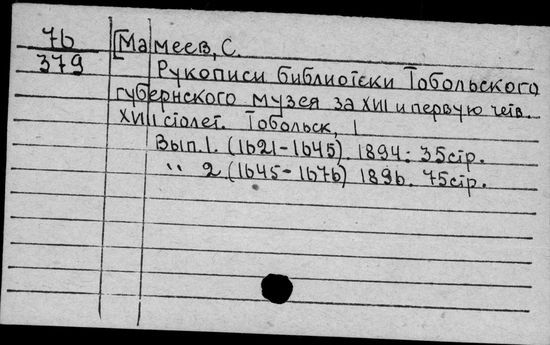 7б [Мамеев, С.
379 Рукописи библиотеки Тобольского
губернского музея за XVII и первую четв.
XVIII столет. Тобольск, 1
Вып. 1. (1621-1645). 1894. 35 стр.
" 2. (1645-1676) 1896. 75 стр.